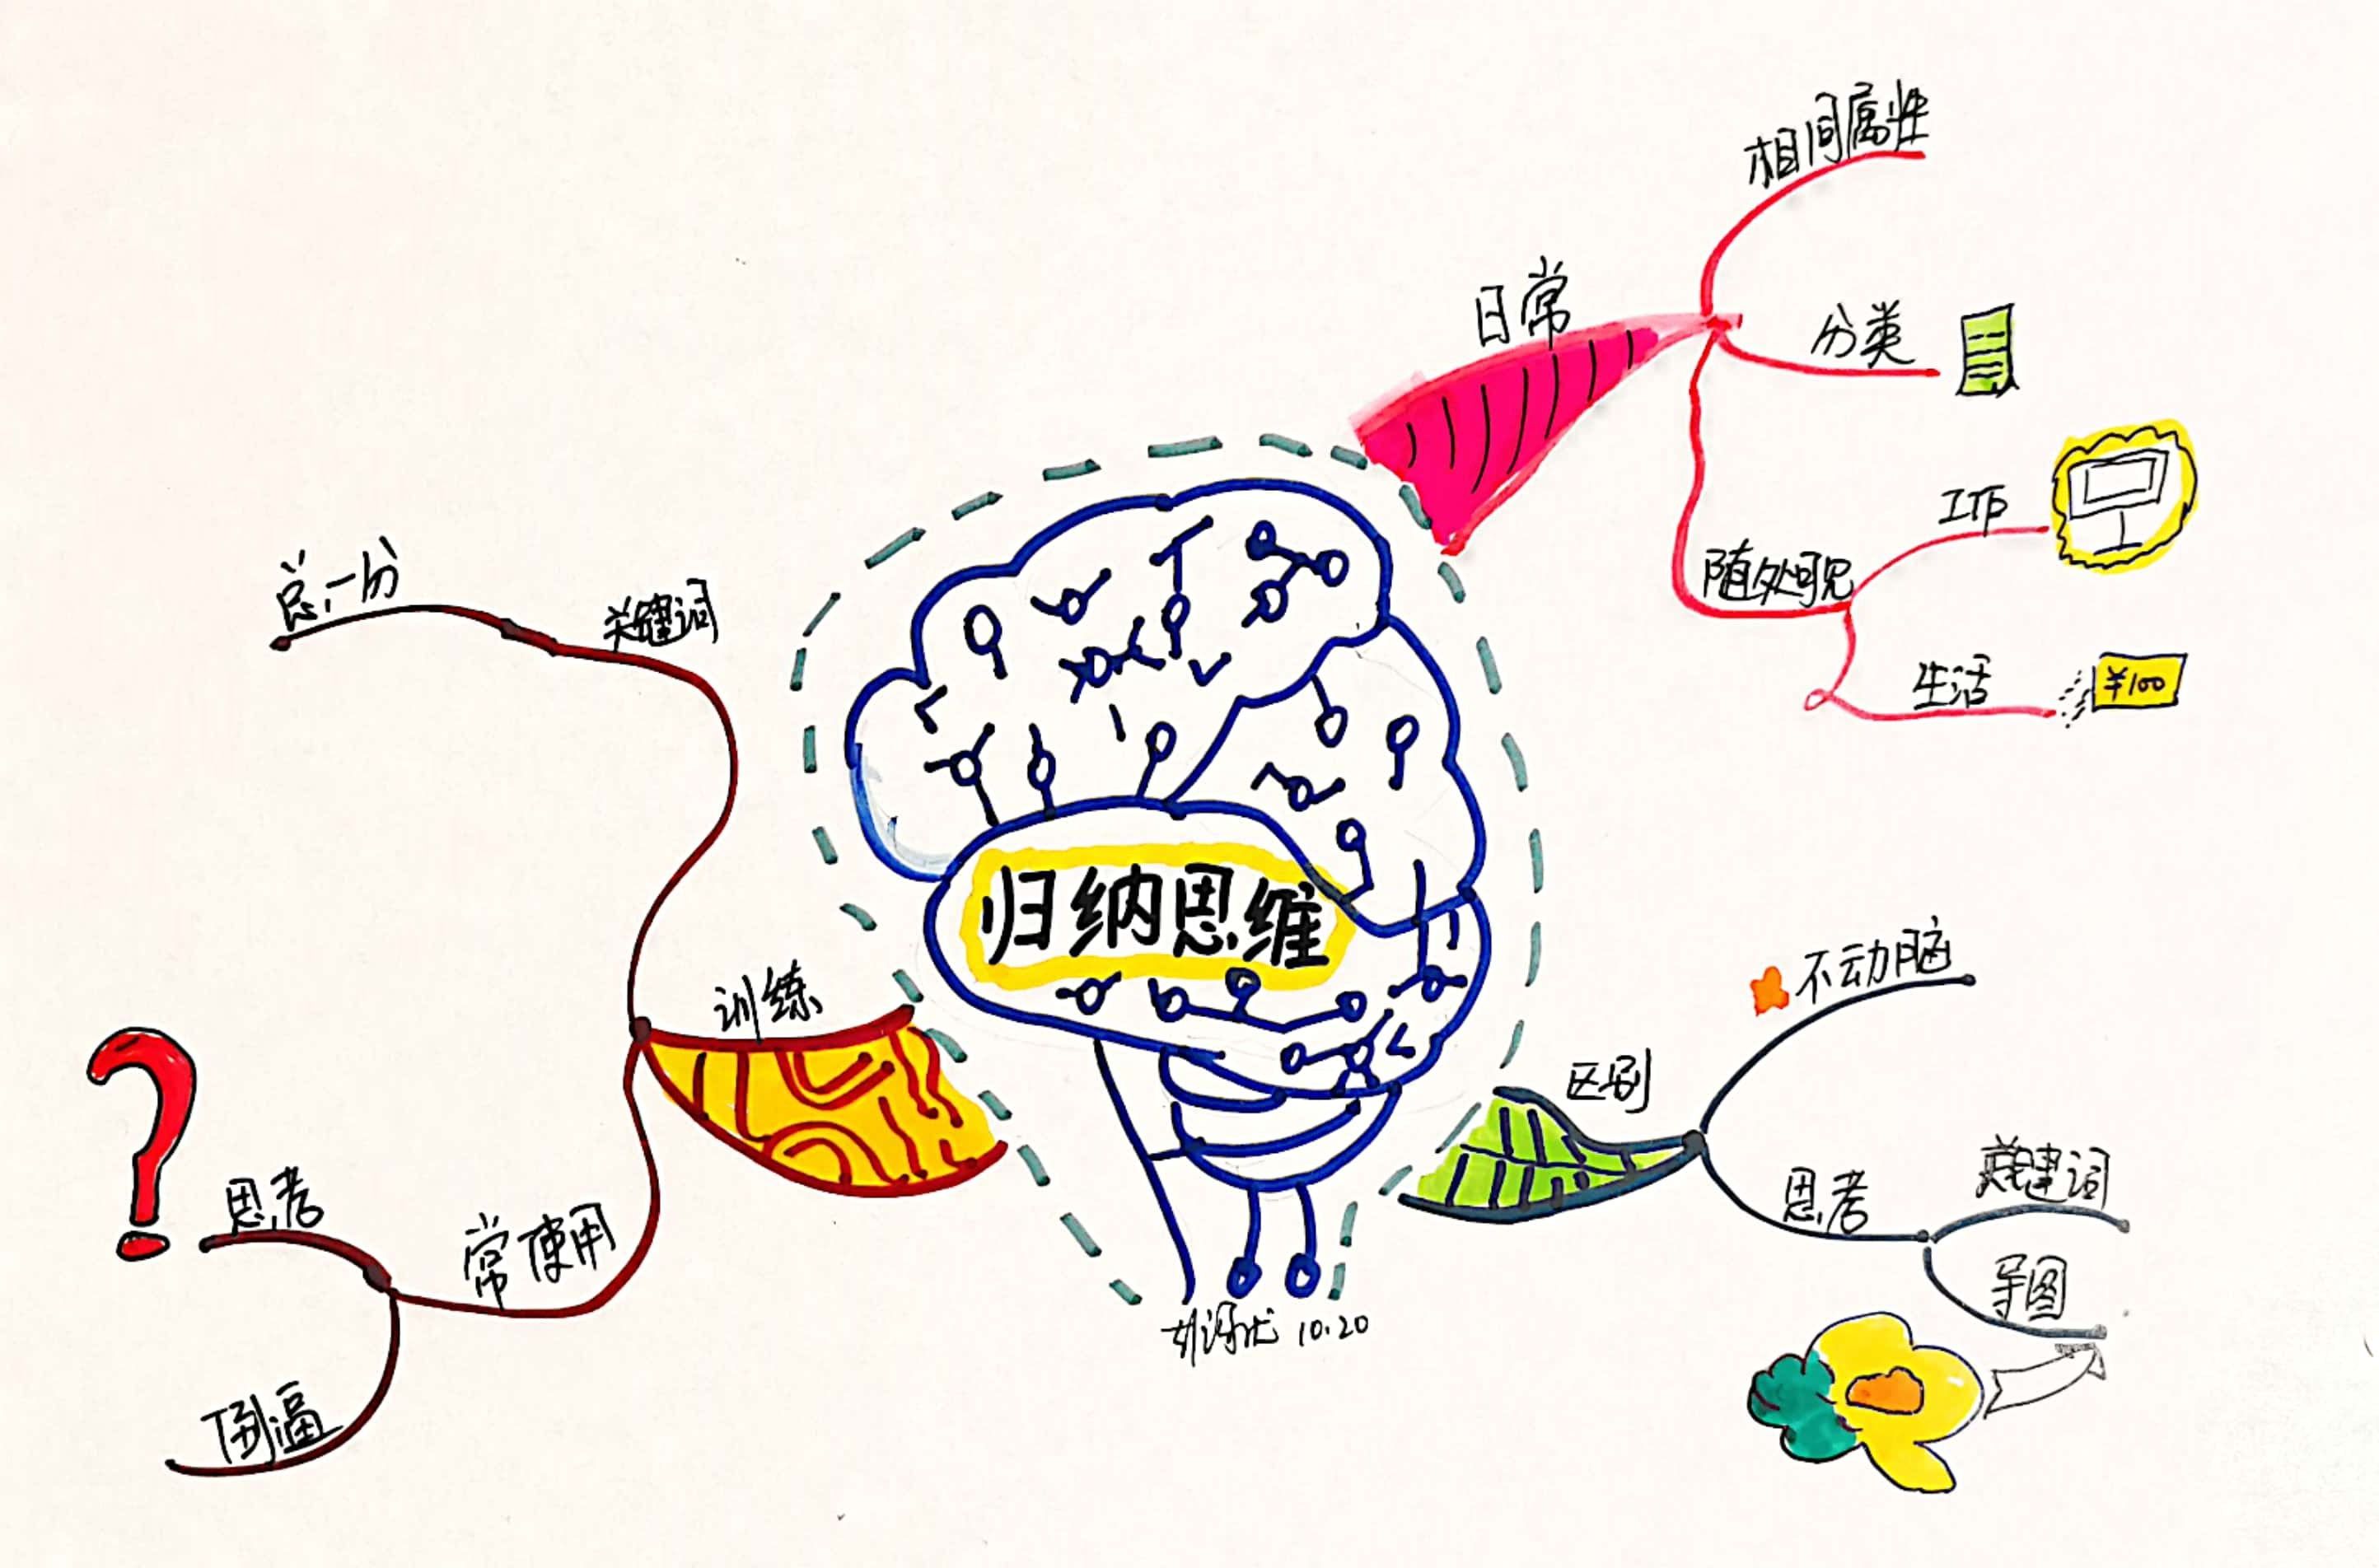 归纳思维
日常
相同属性
分类
随处可见
工作
生活
¥100
区别
不动脑
思考
关键词
导图
训练
关键词
总-分
常使用
思考
倒逼
10.20